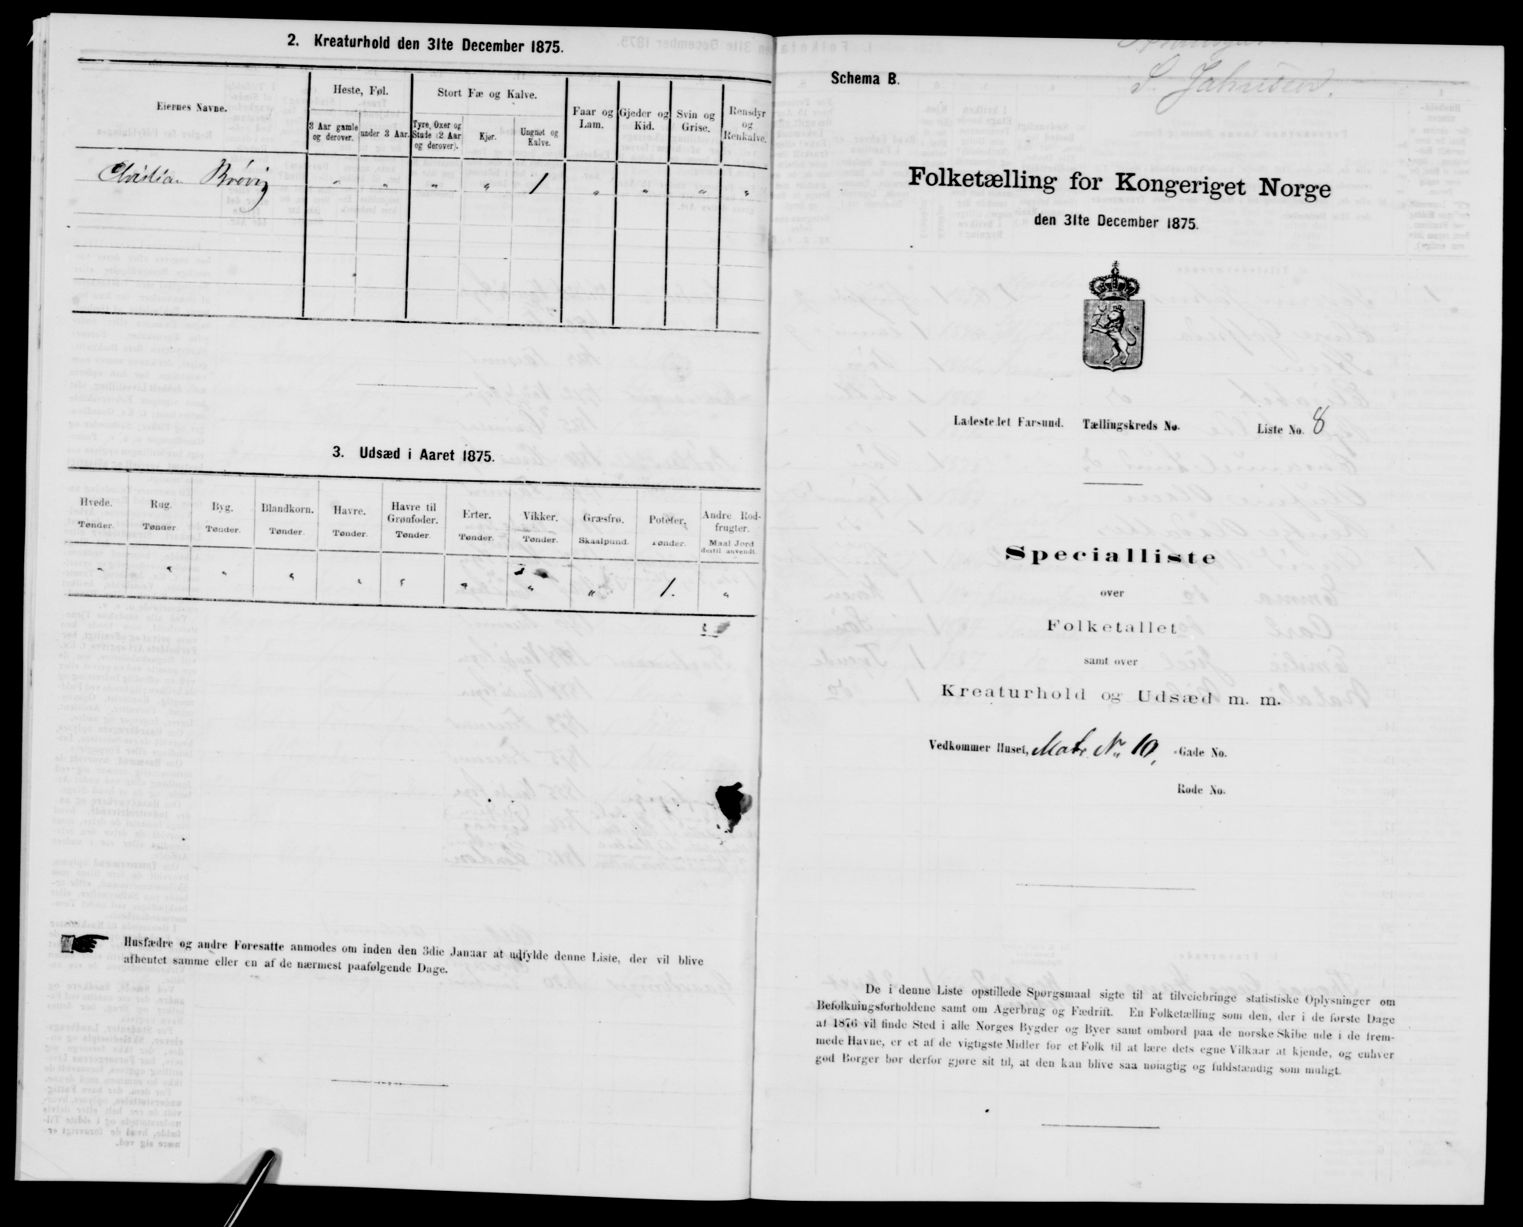 2. Kreaturhold den 31te December 1875.
Eiernes Navne.
Heste, Føl.
Stort Fæ og Kalve.
Faar og Lam.
Gjeder og Kid.
Svin og Grise.
Rensdyr og Renkalve.
3 Aar gamle og derover.
under 3 Aar.
Tyre, Oxer og Stude (2 Aar og derover).
Kjør.
Ungnøt og Kalve.
Christian Brøvig " " " " 1 " " " "
3. Udsæd i Aaret 1875.
Hvede.
Rug.
Byg.
Blandkorn.
Havre.
Havre til Grønfoder.
Erter.
Vikker.
Græsfrø.
Poteter.
Andre Rodfrugter.
Tønder.
Tønder
Tønder.
Tønder.
Tønder.
Tønder.
Tønder.
Tønder.
Skaalpund.
Tønder.
Maal Jord dertil anvendt.
" " " " " " " " " 1. "
Husfædre og andre Foresatte anmodes om inden den 3die Januar at udfylde denne Liste, der vil blive
afhentet samme eller en af de nærmest paafølgende Dage.
Schema B.
Folketælling for Kongeriget Norge
den 31te December 1875.
Ladestedet Farsund. Tællingskreds No. Liste No. 8
Specialliste
over
Folketallet
samt over
Kreaturhold og Udsæd m. m.
Vedkommer Huset, Matr No 10, -Gade No.
Rode No.
De i denne Liste opstillede Spørgsmaal sigte til at tilveiebringe statistiske Oplysninger om
Befolkningsforholdene samt om Agerbrug og Fædrift. En Folketælling som den, der i de første Dage
af 1876 vil finde Sted i alle Norges Bygder og Byer samt ombord paa de norske Skibe ude i de frem-
mede Havne, er et af de vigtigste Midler for et Folk til at lære dets egne Vilkaar at kjende, og enhver
god Borger bør derfor gjøre sit til, at den kan blive saa nøiagtig og fuldstændig som muligt.